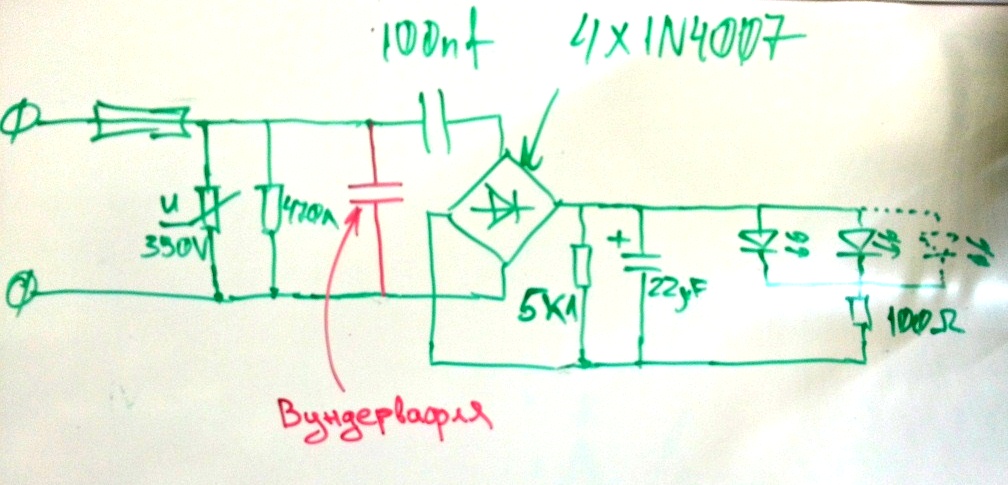 100nf 4X1N4007
U
350V
5K1
22µF
100Ω
Вундервафля